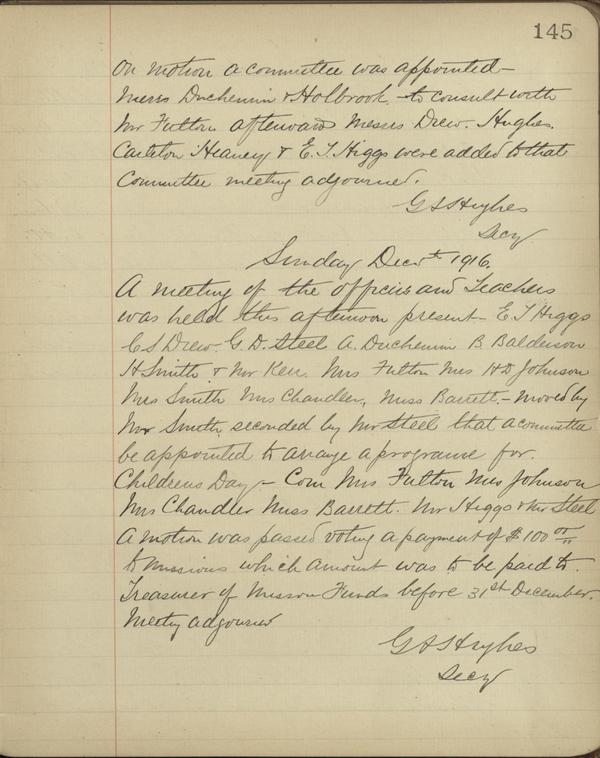 145
On motion a committee was appointed—
Messrs Duchemin & Holbrook, to consult with
Mr Fulton afterward Messrs Drew. Hughes.
Carleton Heaney & E. T. Higgs were added to that
Committee meeting adjourned.
G S Hughes
Secy
Sunday Dec 1916.
A meeting of the officers and Teachers
was held this afternoon present— E T Higgs
C S Drew. G. D. Steel A. Duchemin B. Balderson
H Smith & Mr Kerr. Mrs Fulton Mrs H D Johnson
Mrs Smith Mrs Chandler, Miss Barrett.— moved by
Mr Smith, seconded by Mr Steel that a committee
be appointed to arrange a programe for.
Childrens Day— Com Mrs Fulton Mrs Johnson
Mrs Chandler Miss Barrett. Mr Higgs & Mr Steel
A motion was passed voting a payment of $100 00
to missions which amount was to be paid to.
Treasurer of Mission Funds before 31st December.
Meeting adjourned
G S Hughes
Secy